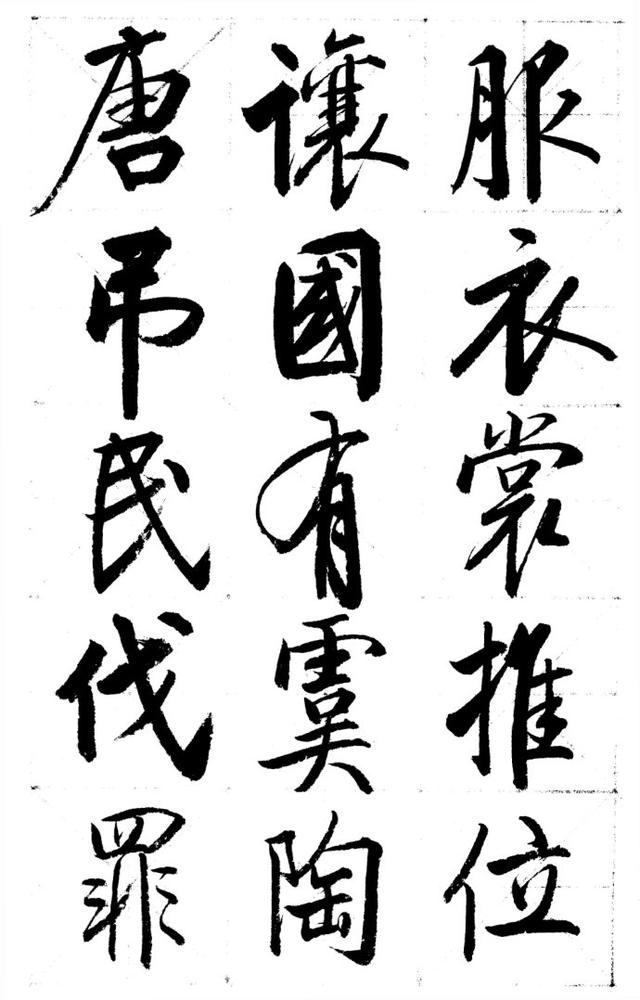 服衣裳推位
讓國有虞陶
唐吊民伐罪